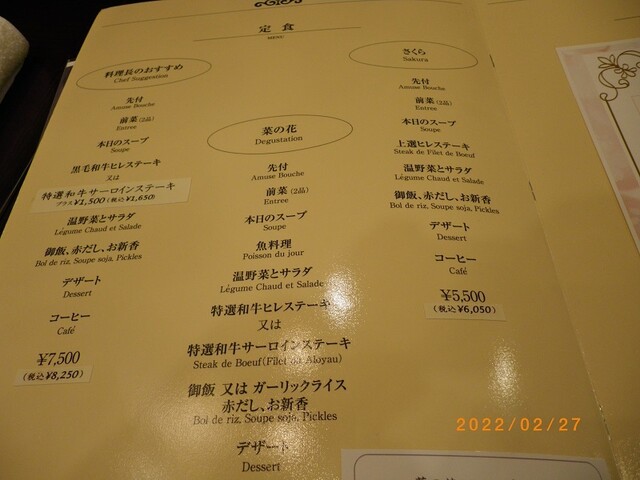 定食
料理長のおすすめ
Chef Suggestion
先付
Amuse Bouche
前菜(2品)
Entree
本日のスープ
Soupe
黒毛和牛ヒレステーキ
又は
特選和牛サーロインステーキ
プラス¥1,500(税込¥1,650)
温野菜とサラダ
Légume Chaud et Salade
御飯、赤だし、お新香
Bol de riz, Soupe soja, Pickles
デザート
Dessert
コーヒー
Café
¥7,500
(税込¥8,250)
菜の花
Degustation
先付
Amuse Bouche
前菜(2品)
Entree
本日のスープ
Soupe
魚料理
Poisson du jour
温野菜とサラダ
Légume Chaud et Salade
特選和牛ヒレステーキ
又は
特選和牛サーロインステーキ
Steak de Boeuf(Filet ou Aloyau)
御飯 又は ガーリックライス
赤だし、お新香
Bol de riz, Soupe soja, Pickles
デザート
Dessert
さくら
Sakura
先付
Amuse Bouche
前菜(2品)
Entree
本日のスープ
Soupe
上選ヒレステーキ
Steak de Filet de Boeuf
温野菜とサラダ
Légume Chaud et Salade
御飯、赤だし、お新香
Bol de riz, Soupe soja, Pickles
デザート
Dessert
コーヒー
Café
¥5,500
(税込¥6,050)
2022/02/27